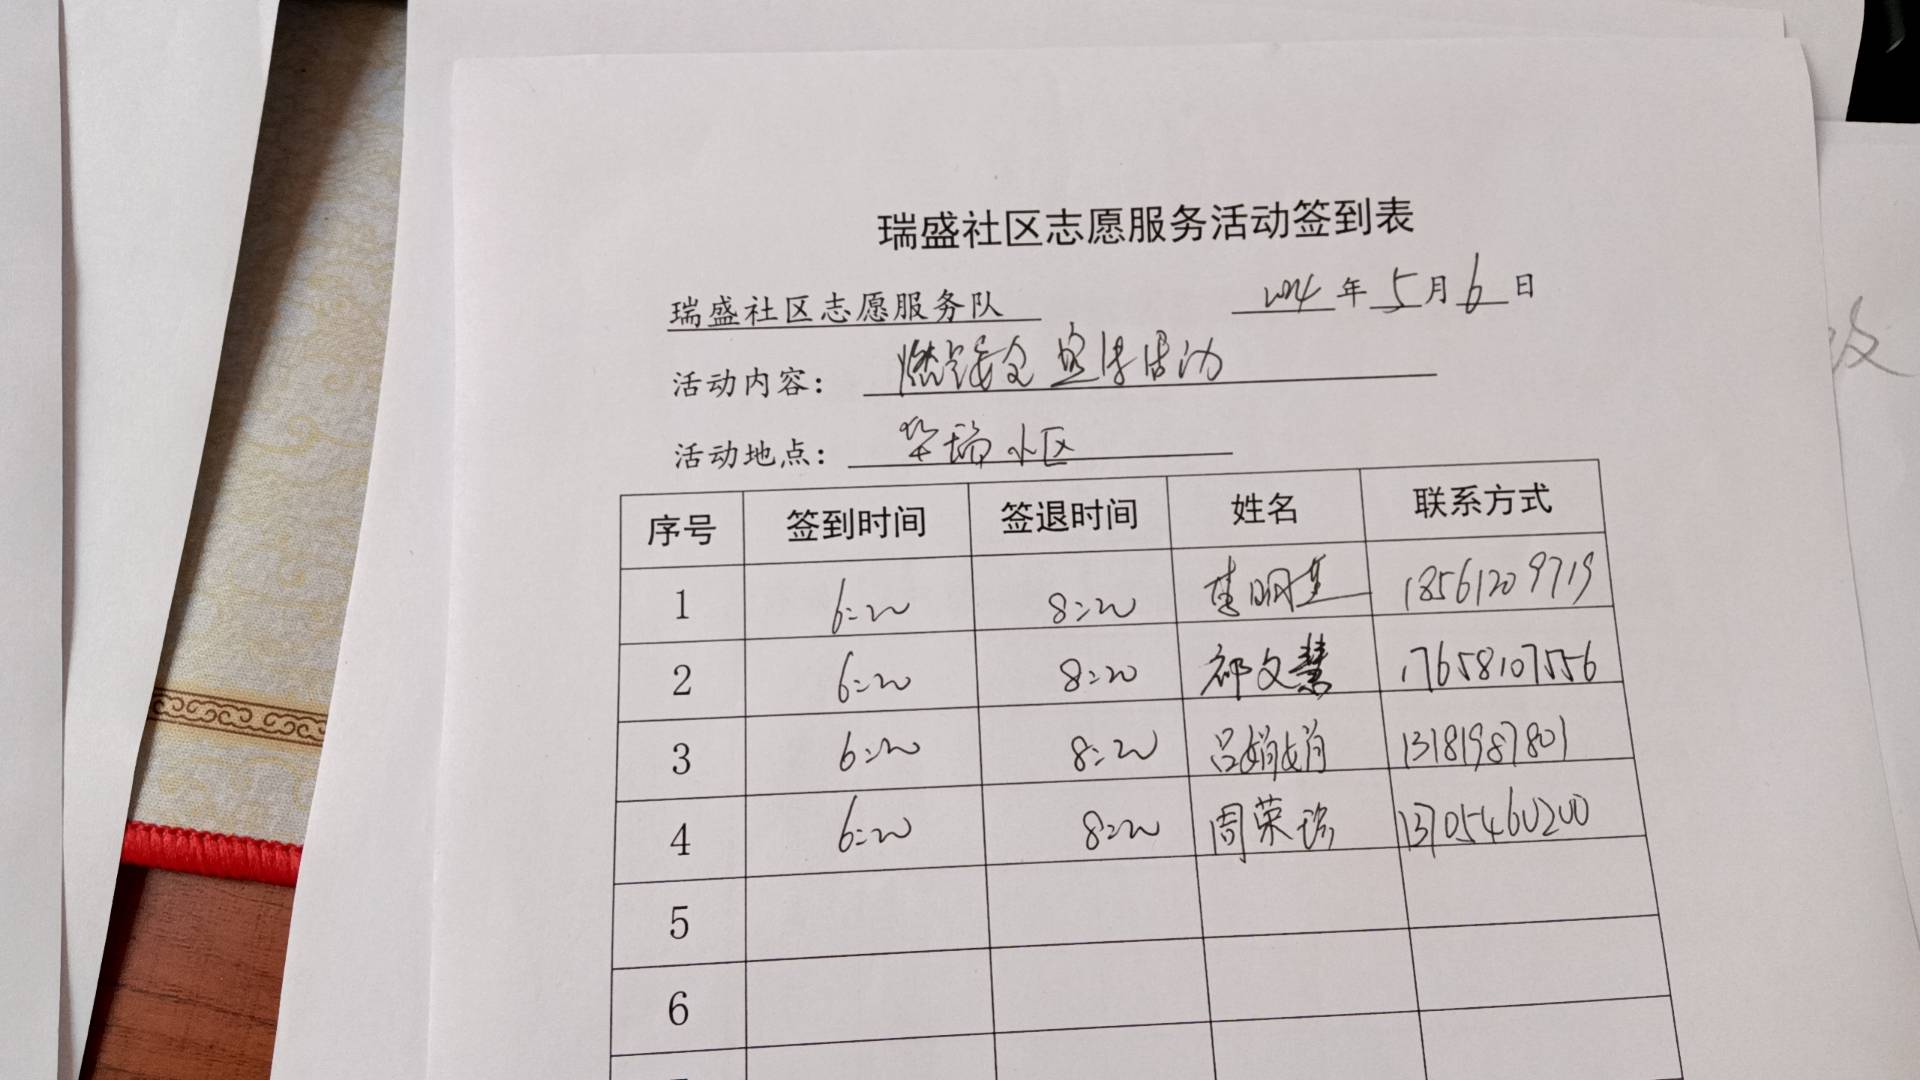 瑞盛社区志愿服务活动签到表
瑞盛社区志愿服务队 2024年5月6日
活动内容：燃气安全宣传活动
活动地点：华瑞小区
序号 签到时间 签退时间 姓名 联系方式
1 6:20 8:20 18561209719
2 6:20 8:20 祁文慧 17658107556
3 6:20 8:20 吕娟娟 13181987801
4 6:20 8:20 周荣瑞 13705460200
5
6